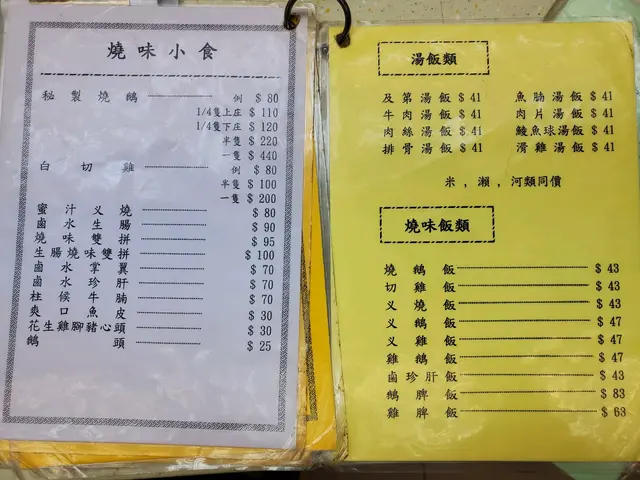 燒味小食
秘製燒鵝 例 $ 80
1/4隻上庄 $ 110
1/4隻下庄 $ 120
半隻 $ 220
一隻 $ 440
白切雞 例 $ 80
半隻 $ 100
一隻 $ 200
蜜汁义燒 $ 80
鹵水生腸 $ 90
燒味雙拼 $ 95
生腸燒味雙拼 $ 100
鹵水掌翼 $ 70
鹵水珍肝 $ 70
柱候牛腩 $ 70
爽口魚皮 $ 30
花生雞腳豬心頭 $ 30
鵝頭 $ 25
湯飯類
及第湯飯 $ 41 魚腩湯飯 $ 41
牛肉湯飯 $ 41 肉片湯飯 $ 41
肉絲湯飯 $ 41 鯪魚球湯飯 $ 41
排骨湯飯 $ 41 滑雞湯飯 $ 41
米，瀨，河類同價
燒味飯類
燒鵝飯 $ 43
切雞飯 $ 43
义燒飯 $ 43
义鵝飯 $ 47
义雞飯 $ 47
雞鵝飯 $ 47
鹵珍肝飯 $ 43
鵝脾飯 $ 83
雞脾飯 $ 63